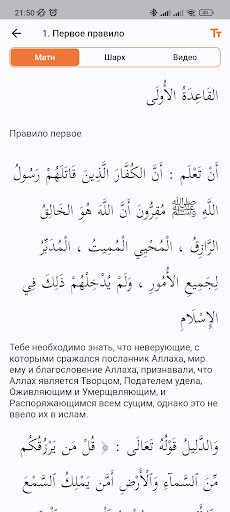 21:50
1. Первое правило
Матн Шарх Видео
القَاعِدَةُ الأُولَى
Правило первое
أَنْ تَعْلَم : أَنَّ الكُفَّارَ الَّذِينَ قَاتَلَهُمْ رَسُولُ
اللَّهِ ﷺ مُقِرُّونَ أَنَّ اللَّهَ هُوَ الخَالِقُ
الرَّازِقُ ، الْمُحْيِي الْمُمِيتُ ، الْمُدَبِّرُ
لِجَمِيعِ الأُمُورِ ، وَلَمْ يُدْخِلْهُمْ ذَلِكَ فِي
الإِسْلَامِ
Тебе необходимо знать, что неверующие, с
которыми сражался посланник Аллаха, мир
ему и благословение Аллаха, признавали, что
Аллах является Творцом, Подателем удела,
Оживляющим и Умерщвляющим, и
Распоряжающимся всем сущим, однако это не
ввело их в ислам.
وَالدَّلِيلُ قَوْلُهُ تَعَالَى : ﴿ قُلْ مَن يَرْزُقُكُم
مِّنَ السَّمَآءِ وَالْأَرْضِ أَمَّن يَمْلِكُ السَّمْعَ